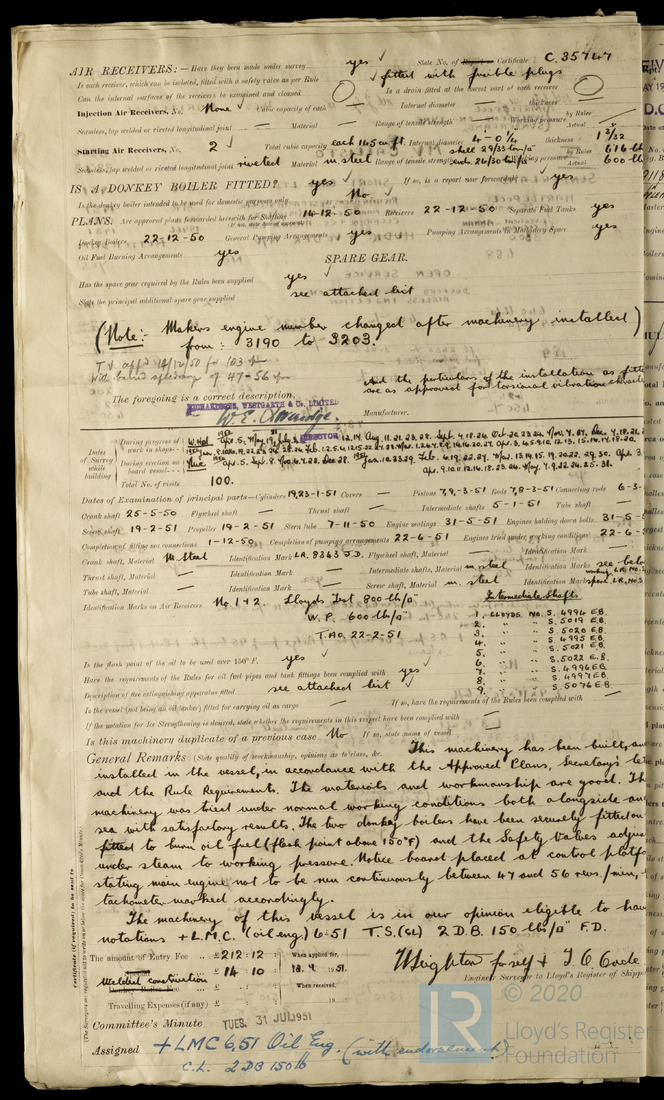 AIR RECEIVERS:— Have they been made under survey yes ✓ State No. of Certificate C. 35747
Is each receiver, which can be isolated, fitted with a safety valve as per Rule ✓ fitted with fusible plugs
Can the internal surfaces of the receivers be examined and cleaned Is a drain fitted at the lowest part of each receiver
Injection Air Receivers, No. None ✓ Cubic capacity of each — Internal diameter — thickness —
Seamless, lap welded or riveted longitudinal joint — Material — Range of tensile strength — Working pressure by Rules — Actual —
Starting Air Receivers, No. 2 ✓ Total cubic capacity each 1145 cu ft. Internal diameter 4-0¼ thickness 1 3/32
Seamless, lap welded or riveted longitudinal joint riveted Material m steel Range of tensile strength shell 29/33 tons/□" ends 26/30 tons/□" Working pressure by Rules 616 lb Actual 600 lb
IS A DONKEY BOILER FITTED? yes ✓ If so, is a report now forwarded? yes ✓
Is the donkey boiler intended to be used for domestic purposes only No ✓
PLANS. Are approved plans forwarded herewith for Shafting 14-12-50 Receivers 22-12-50 Separate Fuel Tanks yes
Donkey Boilers 22-12-50 General Pumping Arrangements yes Pumping Arrangements in Machinery Space yes
Oil Fuel Burning Arrangements yes
SPARE GEAR.
Has the spare gear required by the Rules been supplied yes ✓
State the principal additional spare gear supplied see attached list
(Note:- Makers engine number changed after machinery installed)
from: 3190 to 3203.
T.V. appd 14/12/50 for 103
47-56
And the particulars of the installation as fitte
are as approved for torsional vibration characte
The foregoing is a correct description,
RICHARDSONS, WESTGARTH & Co. LIMITED
DIRECTOR
Manufacturer.
Dates of Survey while building
During progress of work in shops--
During erection on board vessel---
Total No. of visits 100.
Dates of Examination of principal parts—Cylinders 19,23-1-51 Covers — Pistons 7,9,-3-51 Rods 7,8-3-51 Connecting rods 6-3-
Crank shaft 25-5-50 Flywheel shaft — Thrust shaft — Intermediate shafts 5-1-51 Tube shaft —
Screw shaft 19-2-51 Propeller 19-2-51 Stern tube 7-11-50 Engine seatings 31-5-51 Engines holding down bolts 31-5-5
Completion of fitting sea connections 1-12-50 Completion of pumping arrangements 22-6-51 Engines tried under working conditions 22-6-
Crank shaft, Material M. Steel Identification Mark LR. 8363 J.D. Flywheel shaft, Material — Identification Mark —
Thrust shaft, Material — Identification Mark — Intermediate shafts, Material m steel Identification Marks see below
Tube shaft, Material — Identification Mark — Screw shaft, Material m. steel Identification Mark
Identification Marks on Air Receivers No. 1+2. Lloyds Test 800 lb/□"
W.P. 600 lb/□"
T.A.O. 22-2-51
Intermediate Shafts
1. LLOYDS NO. S. 4994 E.B.
2. " " S. 5019 E.B.
3. " " S. 5020 E.B.
4. " " S. 4995 E.B.
5. " " S. 5021 E.B.
6. " " S. 5022 E.B.
7. " " S. 4996 E.B.
8. " " S. 4997 E.B.
9. " " S. 5076 E.B.
Is the flash point of the oil to be used over 150° F. yes ✓
Have the requirements of the Rules for oil fuel pipes and tank fittings been complied with yes ✓
Description of fire extinguishing apparatus fitted see attached list ✓
Is the vessel (not being an oil tanker) fitted for carrying oil as cargo — If so, have the requirements of the Rules been complied with —
If the notation for Ice Strengthening is desired, state whether the requirements in this respect have been complied with —
Is this machinery duplicate of a previous case No If so, state name of vessel —
General Remarks (State quality of workmanship, opinions as to class, &c. This machinery has been built, an
installed in the vessel, in accordance with the Approved Plans, Secretary's le
and the Rule Requirements. The materials and workmanship are good. Th
machinery was tried under normal working conditions both alongside an
sea with satisfactory results. The two donkey boilers have been securely fitted on
fitted to burn oil fuel (flash point above 150°F) and the Safety Valves adjus
under steam to working pressure. Notice board placed at control platfo
stating main engine not to be run continuously between 47 and 56 revs./min,
tachometer marked accordingly.
The machinery of this vessel is in our opinion eligible to hav
notations +L.M.C. (oil eng) 6.51 T.S. (CL) 2 D.B. 150 lb/□" F.D.
The amount of Entry Fee .. £212 : 12 : When applied for,
Welded construction £ 14 : 10 : 18.7 1951.
When received,
Travelling Expenses (if any) £ : : 19
Engineer Surveyor to Lloyd's Register of Shipp
Committee's Minute TUES. 31 JUL 1951
Assigned +LMC 6,51 Oil Eng. (with endorsement)
C.L. 2 DB 150 lb
Certificate (if required) to be sent to
© 2020
Lloyd's Register
Foundation